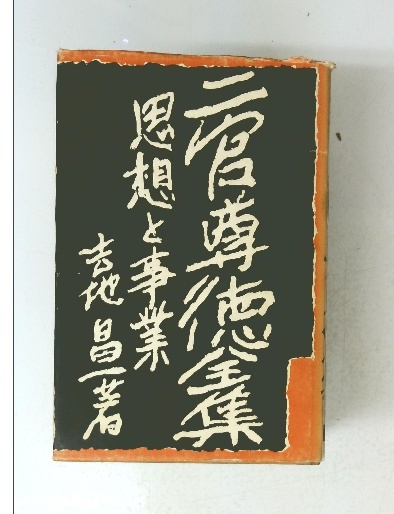 二宮尊徳全集
思想と事業
吉地昌一著